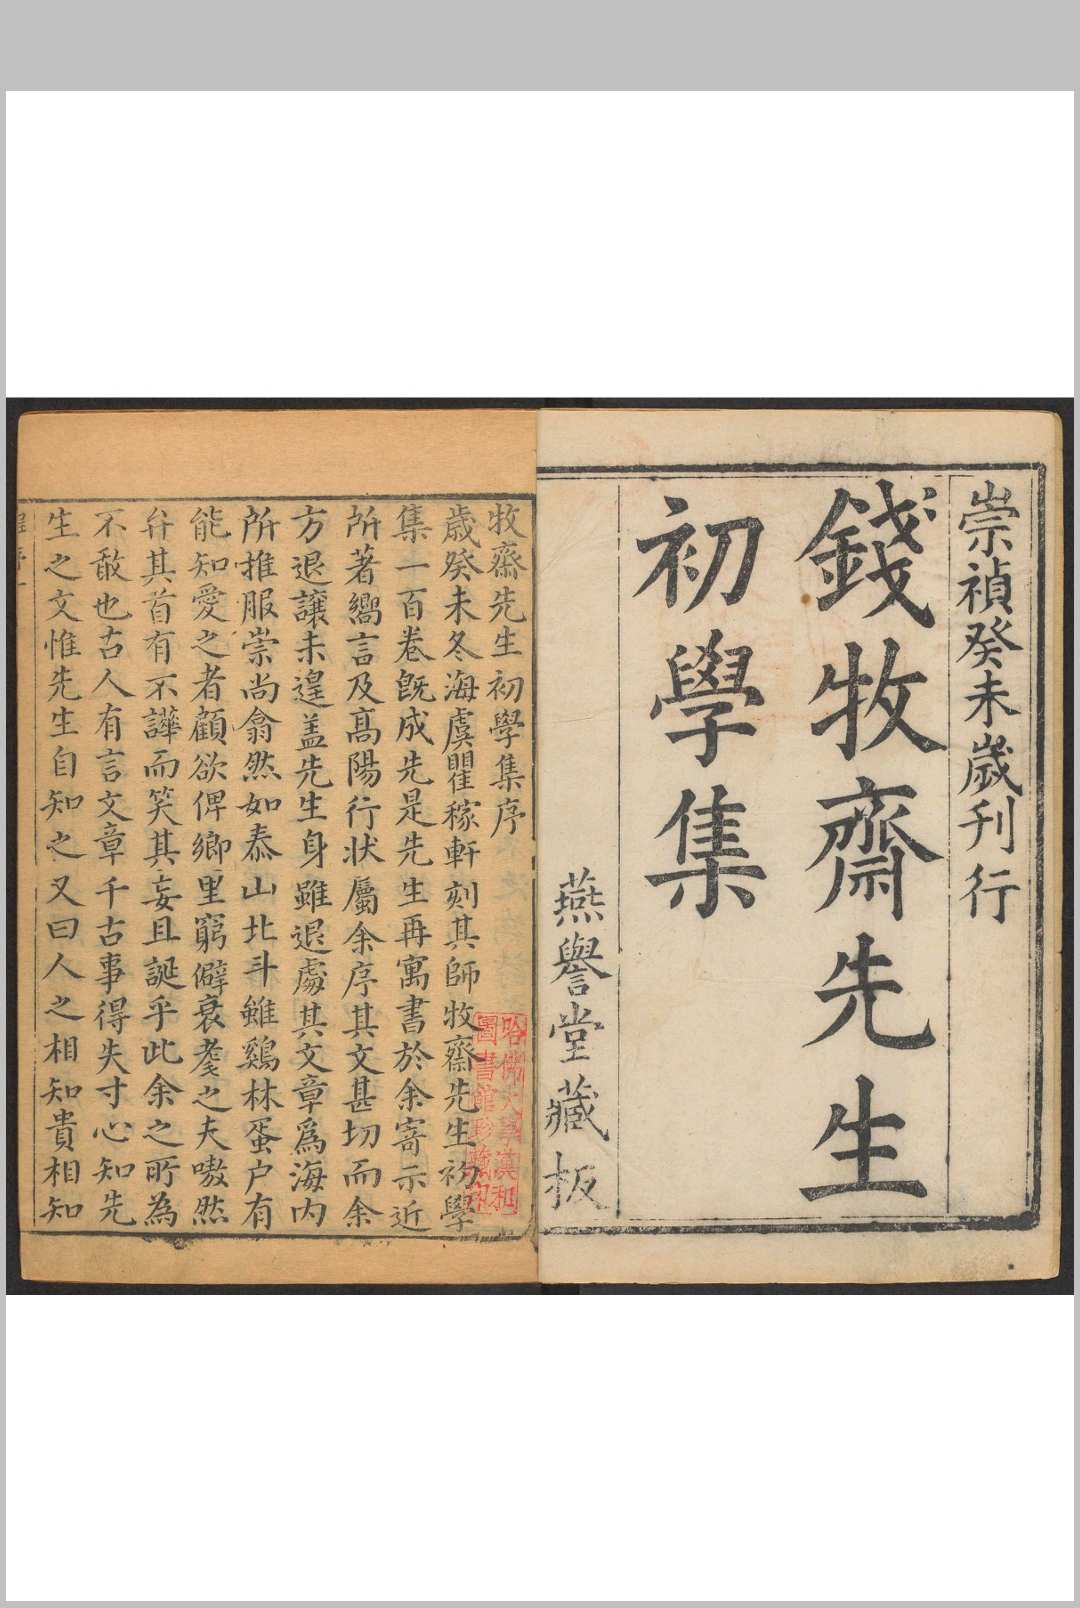 崇禎癸未歲刊行
錢牧齋先生
初學集
燕譽堂藏板
牧齋先生初學集序
歲癸未冬海虞瞿稼軒刻其師牧齋先生初學
集一百卷旣成先是先生再寓書於余寄示近
所著嚮言及高陽行狀屬余序其文甚切而余
方退讓未遑盖先生身雖退處其文章爲海内
所推服崇尚翕然如泰山北斗雖鷄林蛋户有
能知愛之者顧欲俾鄉里窮僻衰耄之夫嗷然
弁其首有不譁而笑其妄且誕乎此余之所為
不敢也古人有言文章千古事得失寸心知先
生之文惟先生自知之又曰人之相知貴相知
程序一
哈佛大學漢和
圖書館珍藏印